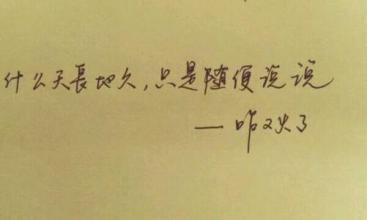 什么天長地久，只是随便说说
— 咋又火了